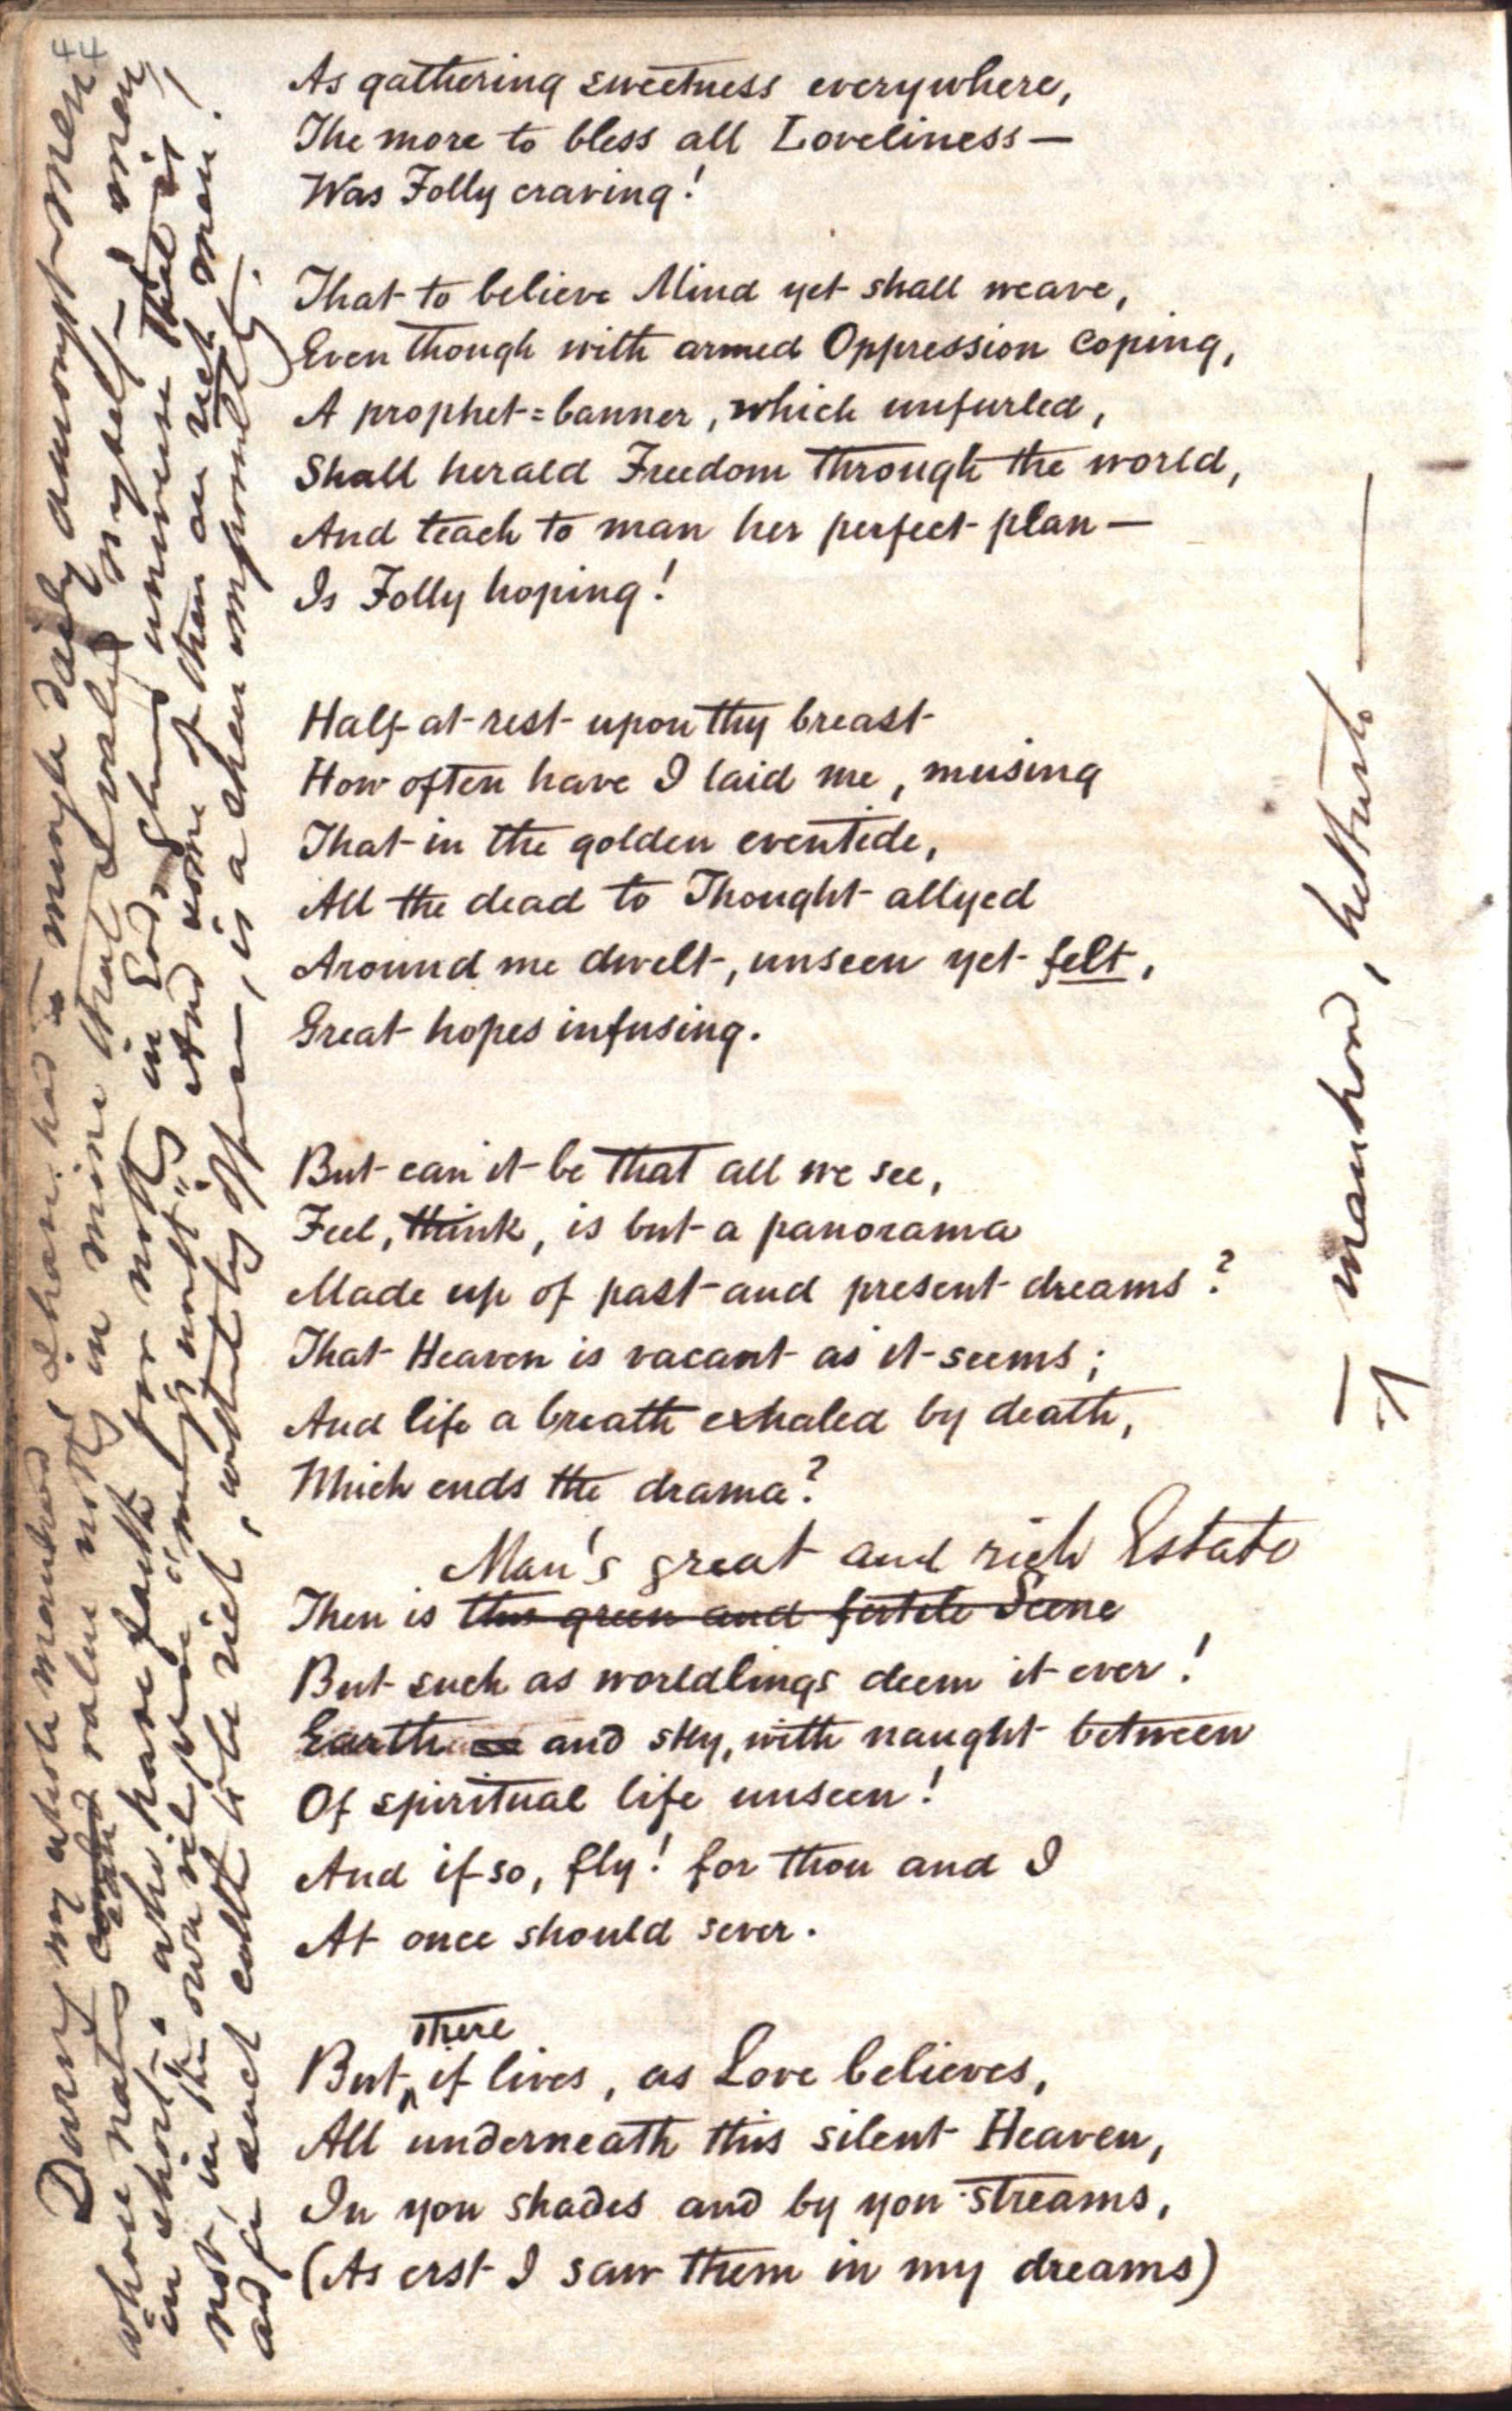 As gathering sweetness everywhere,
The more to bless all Loveliness—
Was Folly craving!
That to believe Mind yet shall weave,
Even though with armed Oppression coping,
A prophet=banner, which unfurled,
Shall herald Freedom through the world,
And teach to man her perfect plan—
Is Folly hoping!
Half at rest upon thy breast
How often have I laid me, musing
That in the golden eventide,
All the dead to Thought allyed
Around me dwelt, unseen yet felt,
Great hopes infusing.
But can it be that all we see,
Feel, think, is but a panorama
Made up of past and present dreams?
That Heaven is vacant as it seems;
And life a breath exhaled by death,
Which ends the drama?
Man's great and rich Estate
Then is this green and fertile Scene
But such as worldlings deem it ever!
Earth and sky, with naught between
Of spiritual life unseen!
And if so, fly! for thou and I
At once should sever.
there
But, if lives, as Love believes,
All underneath this silent Heaven,
In yon shades and by yon streams,
(As erst I saw them in my dreams)
44
During my whole manhood I have had to mingle daily amongst men
whose natures and value not in mine that I value myself— men
in short who have faith for not in God's glorious universe that is
not in their own vile purse "money's worth"; And some of them are rich men!
as far as such can be rich, without sympathy, is a sheer impossibility.
— manhood, hitherto —